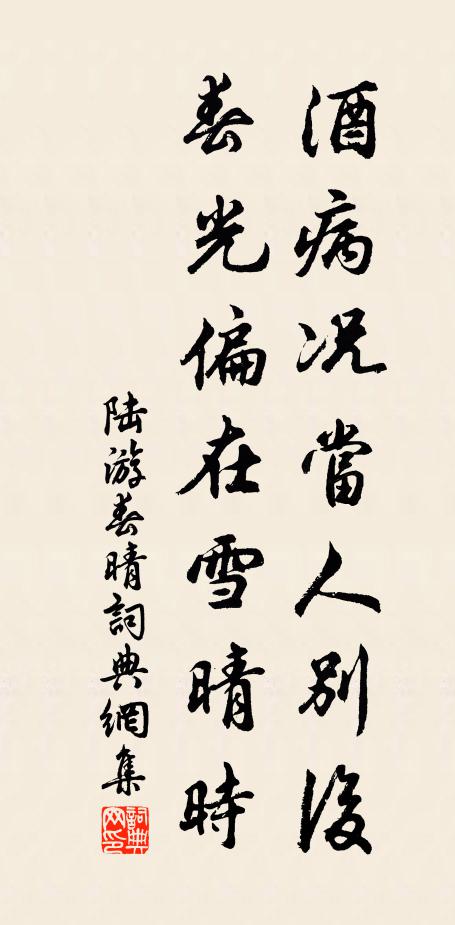 酒病况當人別後
春光偏在雪晴時
陸游春晴詞典網集
詞典网印